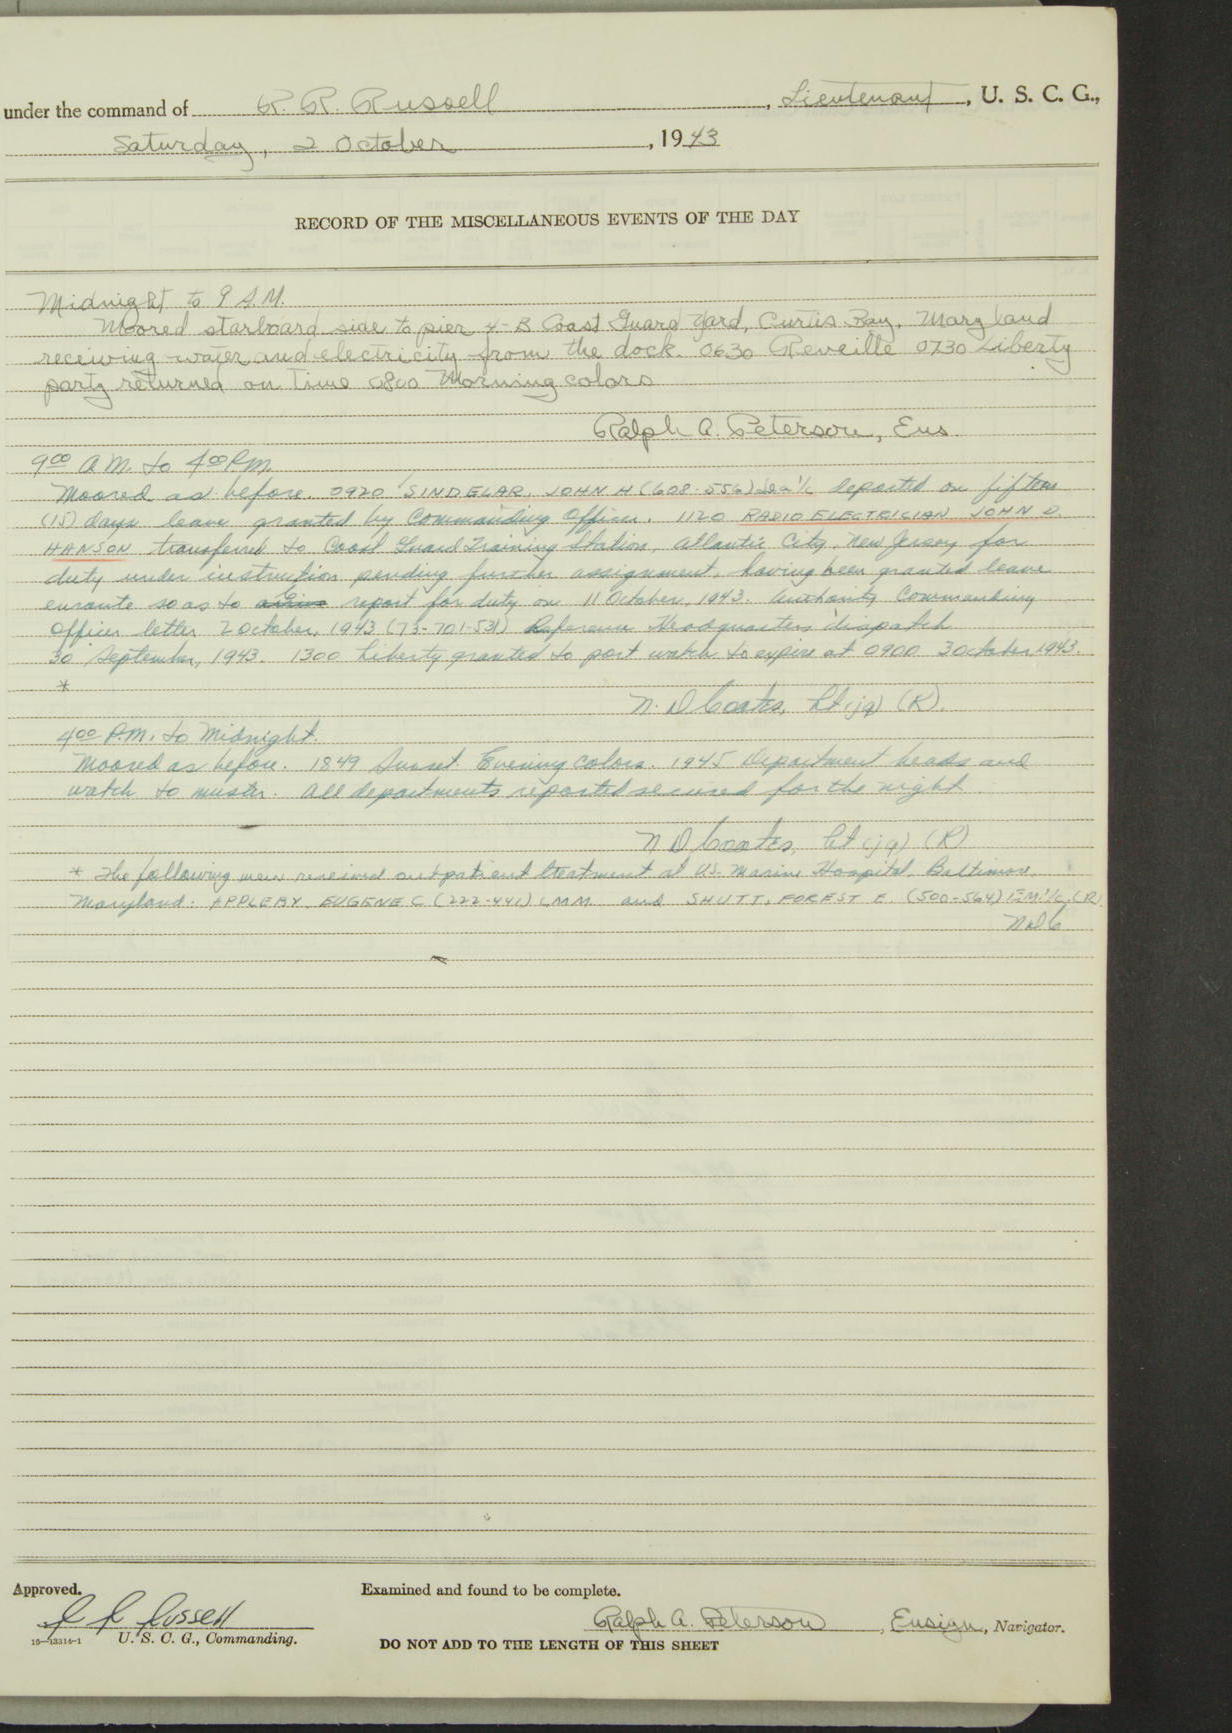 under the command of R. R. Russell, Lieutenant, U. S. C. G.,
Saturday, 2 October, 1943
RECORD OF THE MISCELLANEOUS EVENTS OF THE DAY
Midnight to 9 A.M.
Moored starboard side to pier 4-B Coast Guard Yard, Curtis Bay, Maryland
receiving water and electricity from the dock. 0630 Reveille 0730 Liberty
party returned on time 0800 Morning colors
Ralph A. Peterson, Ens.
9 00 A.M. to 4 00 P.M.
Moored as before. 0920 SINDELAR, JOHN H (608-556) Sea 1/c departed on fifteen
(15) days leave granted by Commanding Officer. 1120 RADIO ELECTRICIAN JOHN D.
HANSON transferred to Coast Guard Training Station, Atlantic City, New Jersey for
duty under instruction pending further assignment, having been granted leave
enroute so as to arrive report for duty on 11 October, 1943. Authority Commanding
Officer letter 2 October, 1943 (73-701-531) Reference Headquarters dispatch
30 September, 1943. 1300 Liberty granted to port watch to expire at 0900 3 October 1943.
*
N. D Coates, Lt (jg) (R).
4 00 P.M. to Midnight.
Moored as before. 1849 Sunset. Evening colors. 1945 Department heads and
watch to muster. All departments reported secured for the night
N D Coates, Lt (jg) (R)
* The following men received outpatient treatment at U.S. Marine Hospital, Baltimore,
Maryland: APPLEBY, EUGENE C (222-441) CMM and SHUTT, FOREST E. (500-564) (R)
NDC
Approved.
Examined and found to be complete.
R R Russell
Ralph A. Peterson, Ensign, Navigator.
16—13314-1 U. S. C. G., Commanding.
DO NOT ADD TO THE LENGTH OF THIS SHEET